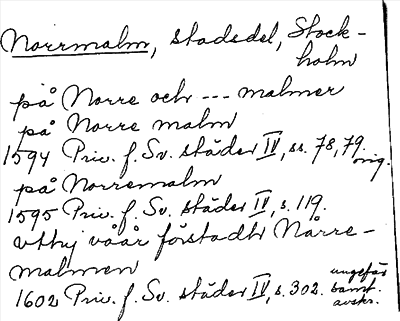 Norrmalm, stadsdel, Stock-
holm
på Norre och --- malmer
på Norre malm
1594 Priv. f. Sv. städer IV, ss. 78, 79.
orig.
på Norremalm
1595 Priv. f. Sv. städer IV, s. 119.
vthj våår förstadh Nårre-
malmen
1602 Priv. f. Sv. städer IV, s. 302. ungefär
samt.
avskr.